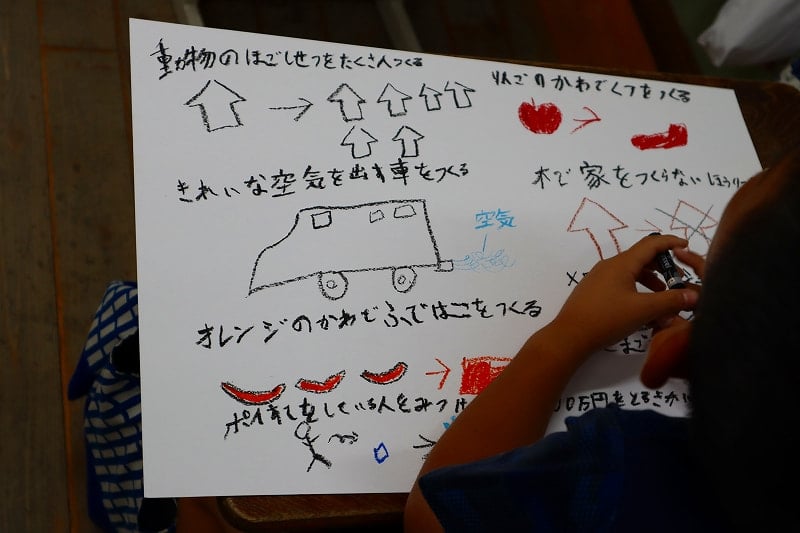 動物のほごしせつをたくさんつくる
りんごのかわでくつをつくる
きれいな空気を出す車をつくる
木で家をつくらないほうり
空気
オレンジのかわでふではこをつくる
ポイ捨てをしている人をみつけ
0万円をとる